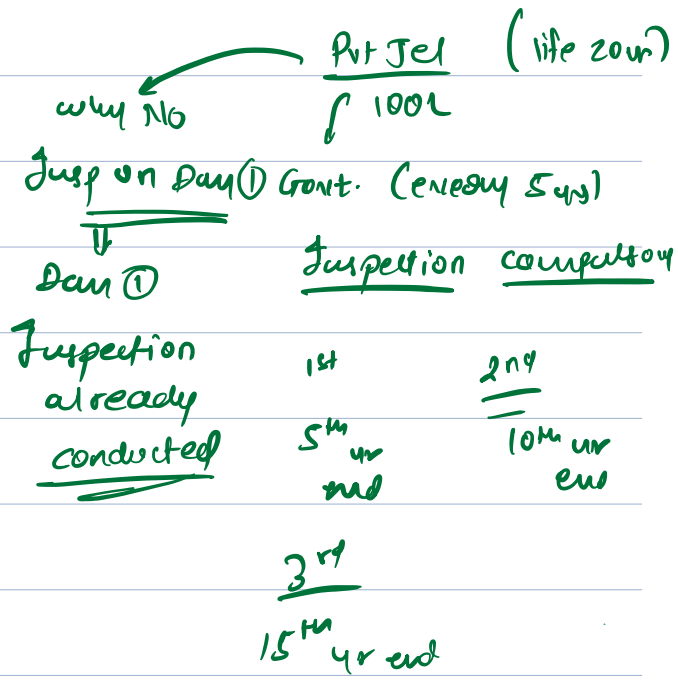 Pvt Jet (life 20 yr)
Why No
100L
Insp on Day ① Govt. (every 5 yrs)
Day ①
Inspection compulsory
Inspection
already
conducted
1st
5th yr
end
2nd
10th yr
end
3rd
15th yr end